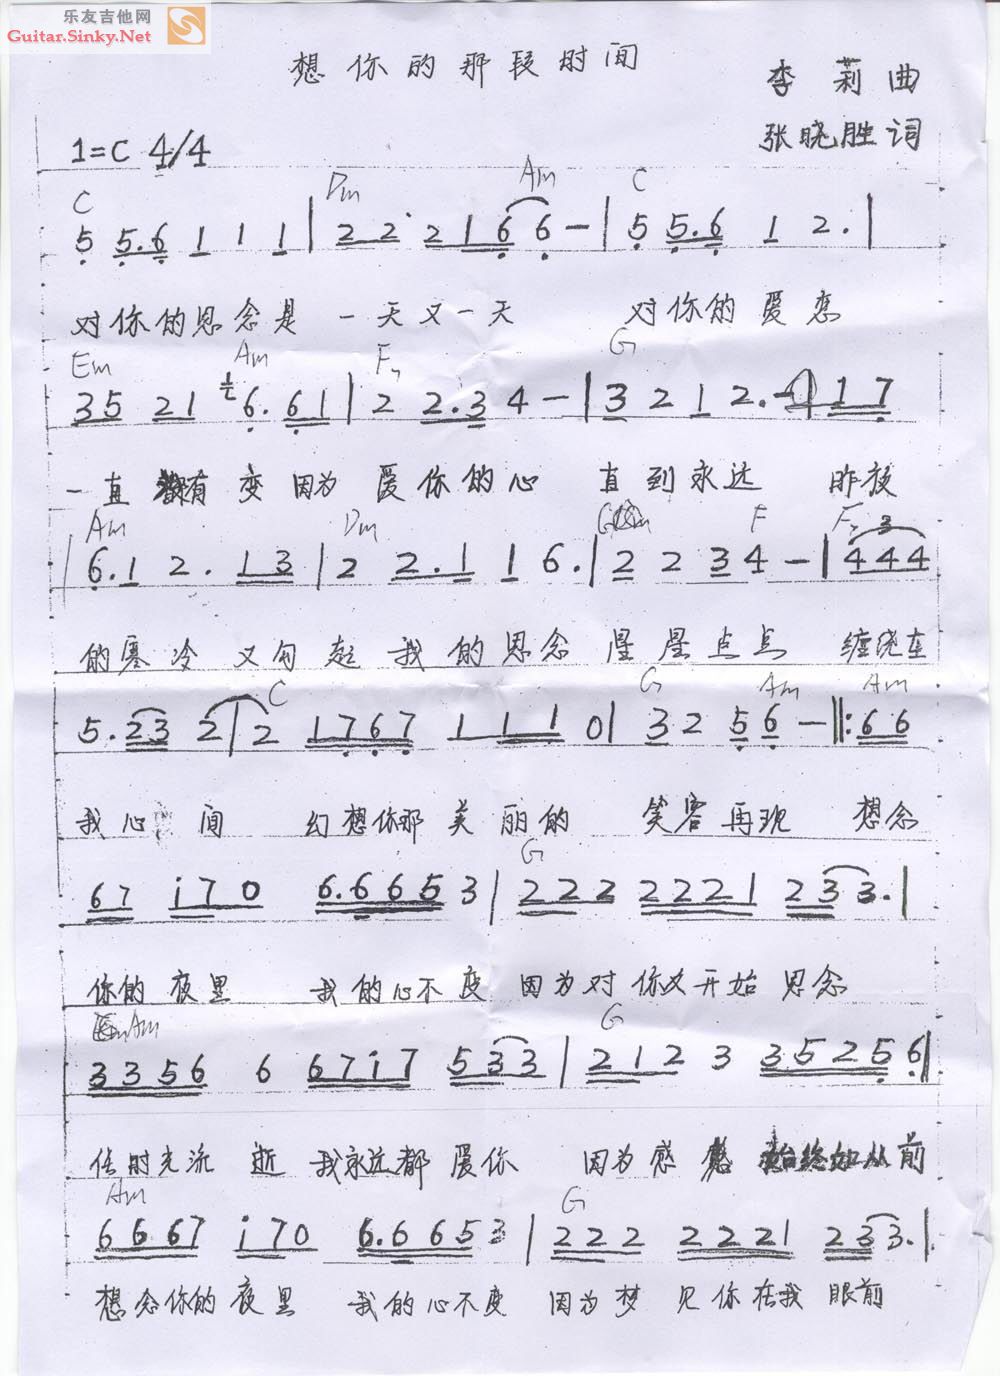 乐友吉他网
Guitar.Sinky.Net
想你的那段时间
李莉曲
张晓胜词
1=C 4/4
C Dm Am C
5 5.6 1 1 1 | 2 2 2 1 6 6 - | 5 5.6 1 2. |
对你的思念是 一天又一天 对你的爱恋
Em Am F7 G
3 5 2 1 6. 6 1 | 2 2.3 4 - | 3 2 1 2. - | 1 7
一直有变因为爱你的心 直到永远 昨夜
Am Dm G F F7 3
| 6.1 2. 1 3 | 2 2.1 1 6. | 2 2 3 4 - | 4 4 4
的寒冷又勾起我的思念 星星点点 缠绕在
C G Am Am
5. 2 3 2 | 2 1 7 6 7 1 1 1 0 | 3 2 5 6 - ‖: 6 6
我心间 幻想你那美丽的 笑容再现 想念
G
6 7 i 7 0 6. 6 6 5 3 | 2 2 2 2 2 2 1 2 3 3. |
你的夜里 我的心不变 因为对你又开始思念
Am G
3 3 5 6 6 6 7 i 7 5 3 3 | 2 1 2 3 3 5 2 5 6 ‖
任时光流逝 我永远都爱你 因为感 始终如从前
Am G
6 6 6 7 i 7 0 6. 6 6 5 3 | 2 2 2 2 2 2 1 2 3 3. |
想念你的夜里 我的心不变 因为梦见你在我眼前